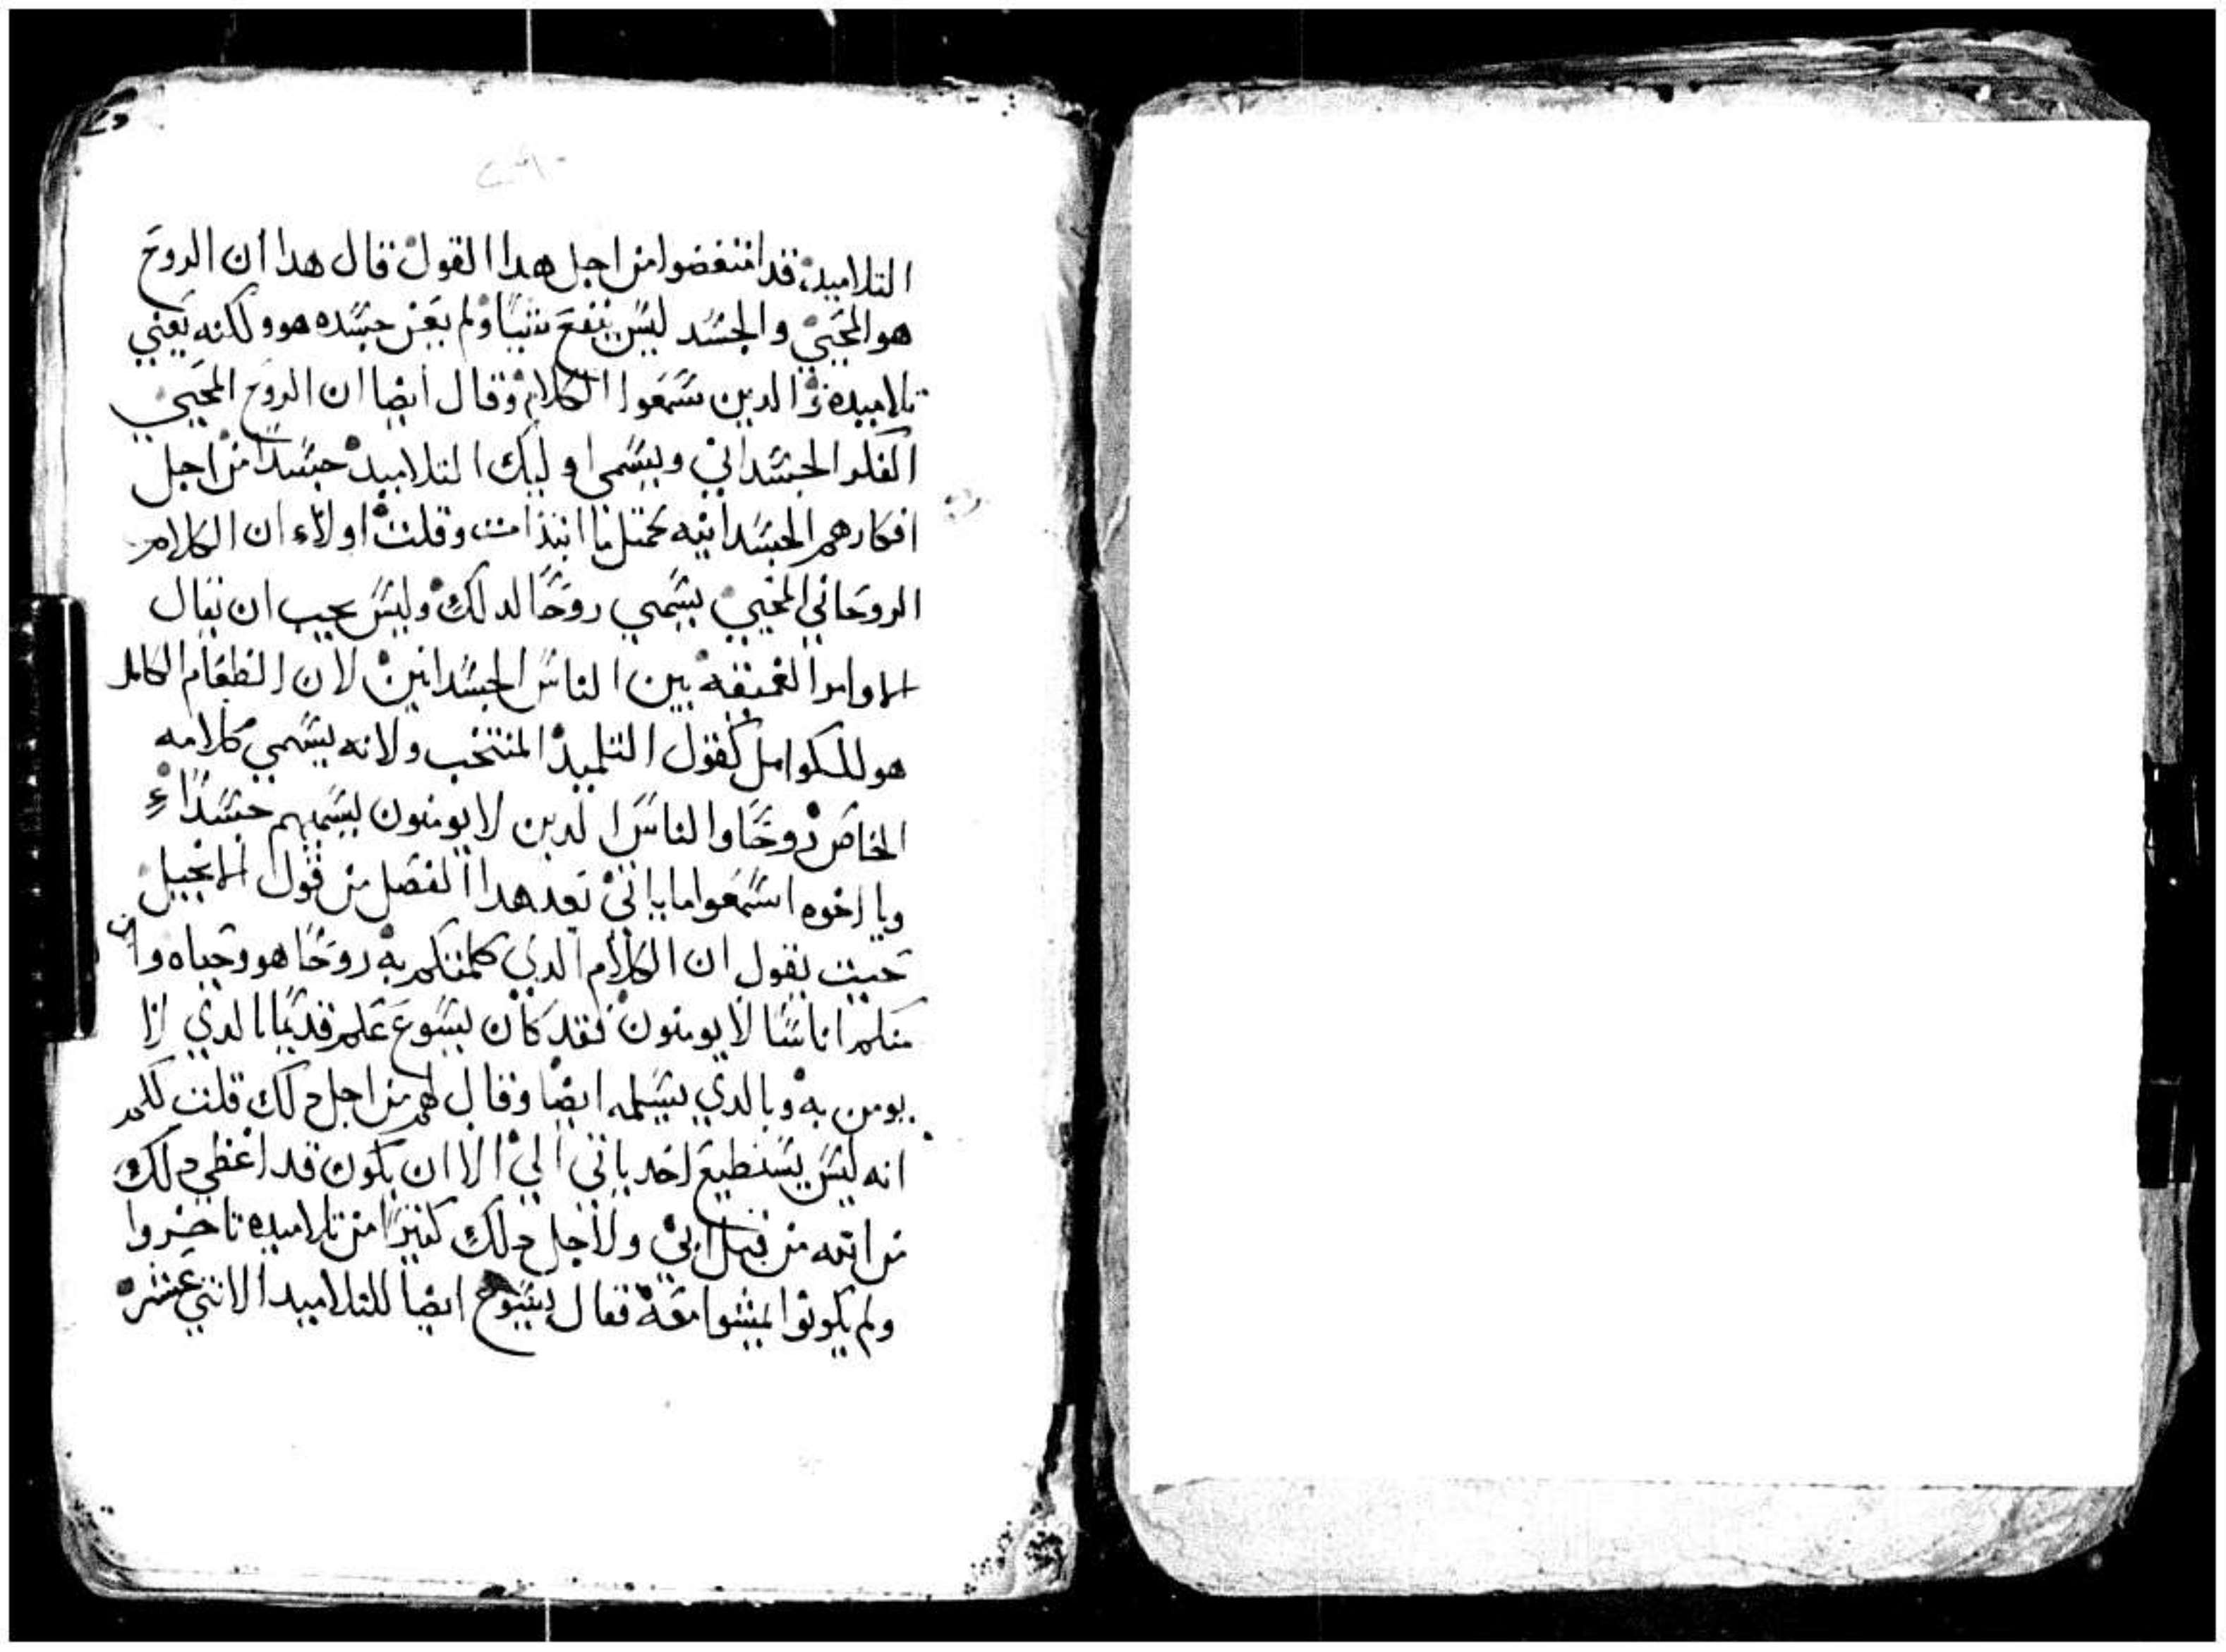 التلاميد قد امتغضوا من اجل هدا القول قال هدا ان الروح
هو المحيي والجسد ليس ينفع شيا ولم يعن جسده هو ولكنه يعني
تلاميده الدين سمعوا الكلام وقال ايضا ان الروح المحيي
الفكر الجسداني ويسمي اوليك التلاميد جسدا من اجل
افكارهم الجسدانيه كمتل ما ابتدات وقلت اولاء ان الكلام
الروحاني المحيي يسمي روحا لدلك وليس يجب ان يقال
الاوامر العميقه بين الناس الجسدانين لان الطعام الكامل
هو للكوامل كقول التلميد المنتخب ولانه يسمي كلامه
الخاص روحا والناس الدين لا يومنون يسميهم جسداء
ويا اخوه اسمعوا ما ياتي بعد هدا الفصل من قول الانجيل
حيت يقول ان الكلام الدي كلمتكم به روحا هو وحياه وان
منكم اناسا لا يومنون فقد كان يسوع علم قديما بالدي لا
يومن به وبالدي يسلمه ايضا وقال لهم من اجل دلك قلت لكم
انه ليس يستطيع احد ياتي الي الا ان يكون قد اعطي دلك
من قبل ابي ولاجل دلك كتيرا من تلاميده تاخروا
ولم يكونوا يمشوا معه فقال يسوع ايضا للتلاميد الاتني عشر